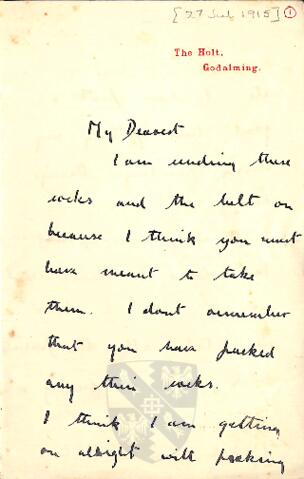 [27 Jul 1915] 1
The Holt,
Godalming.
My Dearest
I am sending these
socks and the belt on
because I think you must
have meant to take
them. I dont remember
that you have packed
any thin socks.
I think I am getting
on alright with packing